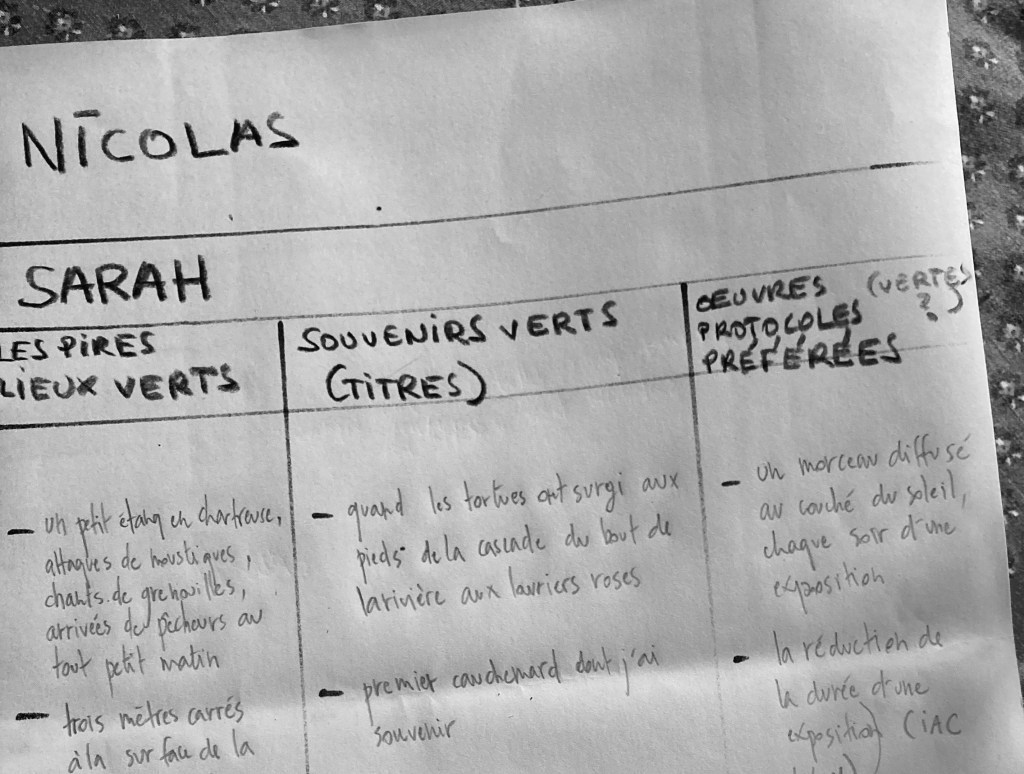 NICOLAS
SARAH
LES PIRES
LIEUX VERTS
- un petit étang en chartreuse,
attaques de moustiques,
chants de grenouilles,
arrivées de pêcheurs au
tout petit matin
- trois mètres carrés
à la surface de la
SOUVENIRS VERTS
(TITRES)
- quand les tortues ont surgi aux
pieds de la cascade du bout de
la rivière aux lauriers roses
- premier cauchemard dont j'ai
souvenir
ŒUVRES (VERTES
PROTOCOLES ?)
PRÉFÉRÉES
- un morceau diffusé
au couché du soleil,
chaque soir d'une
exposition
- la réduction de
la durée d'une
exposition) (iAC